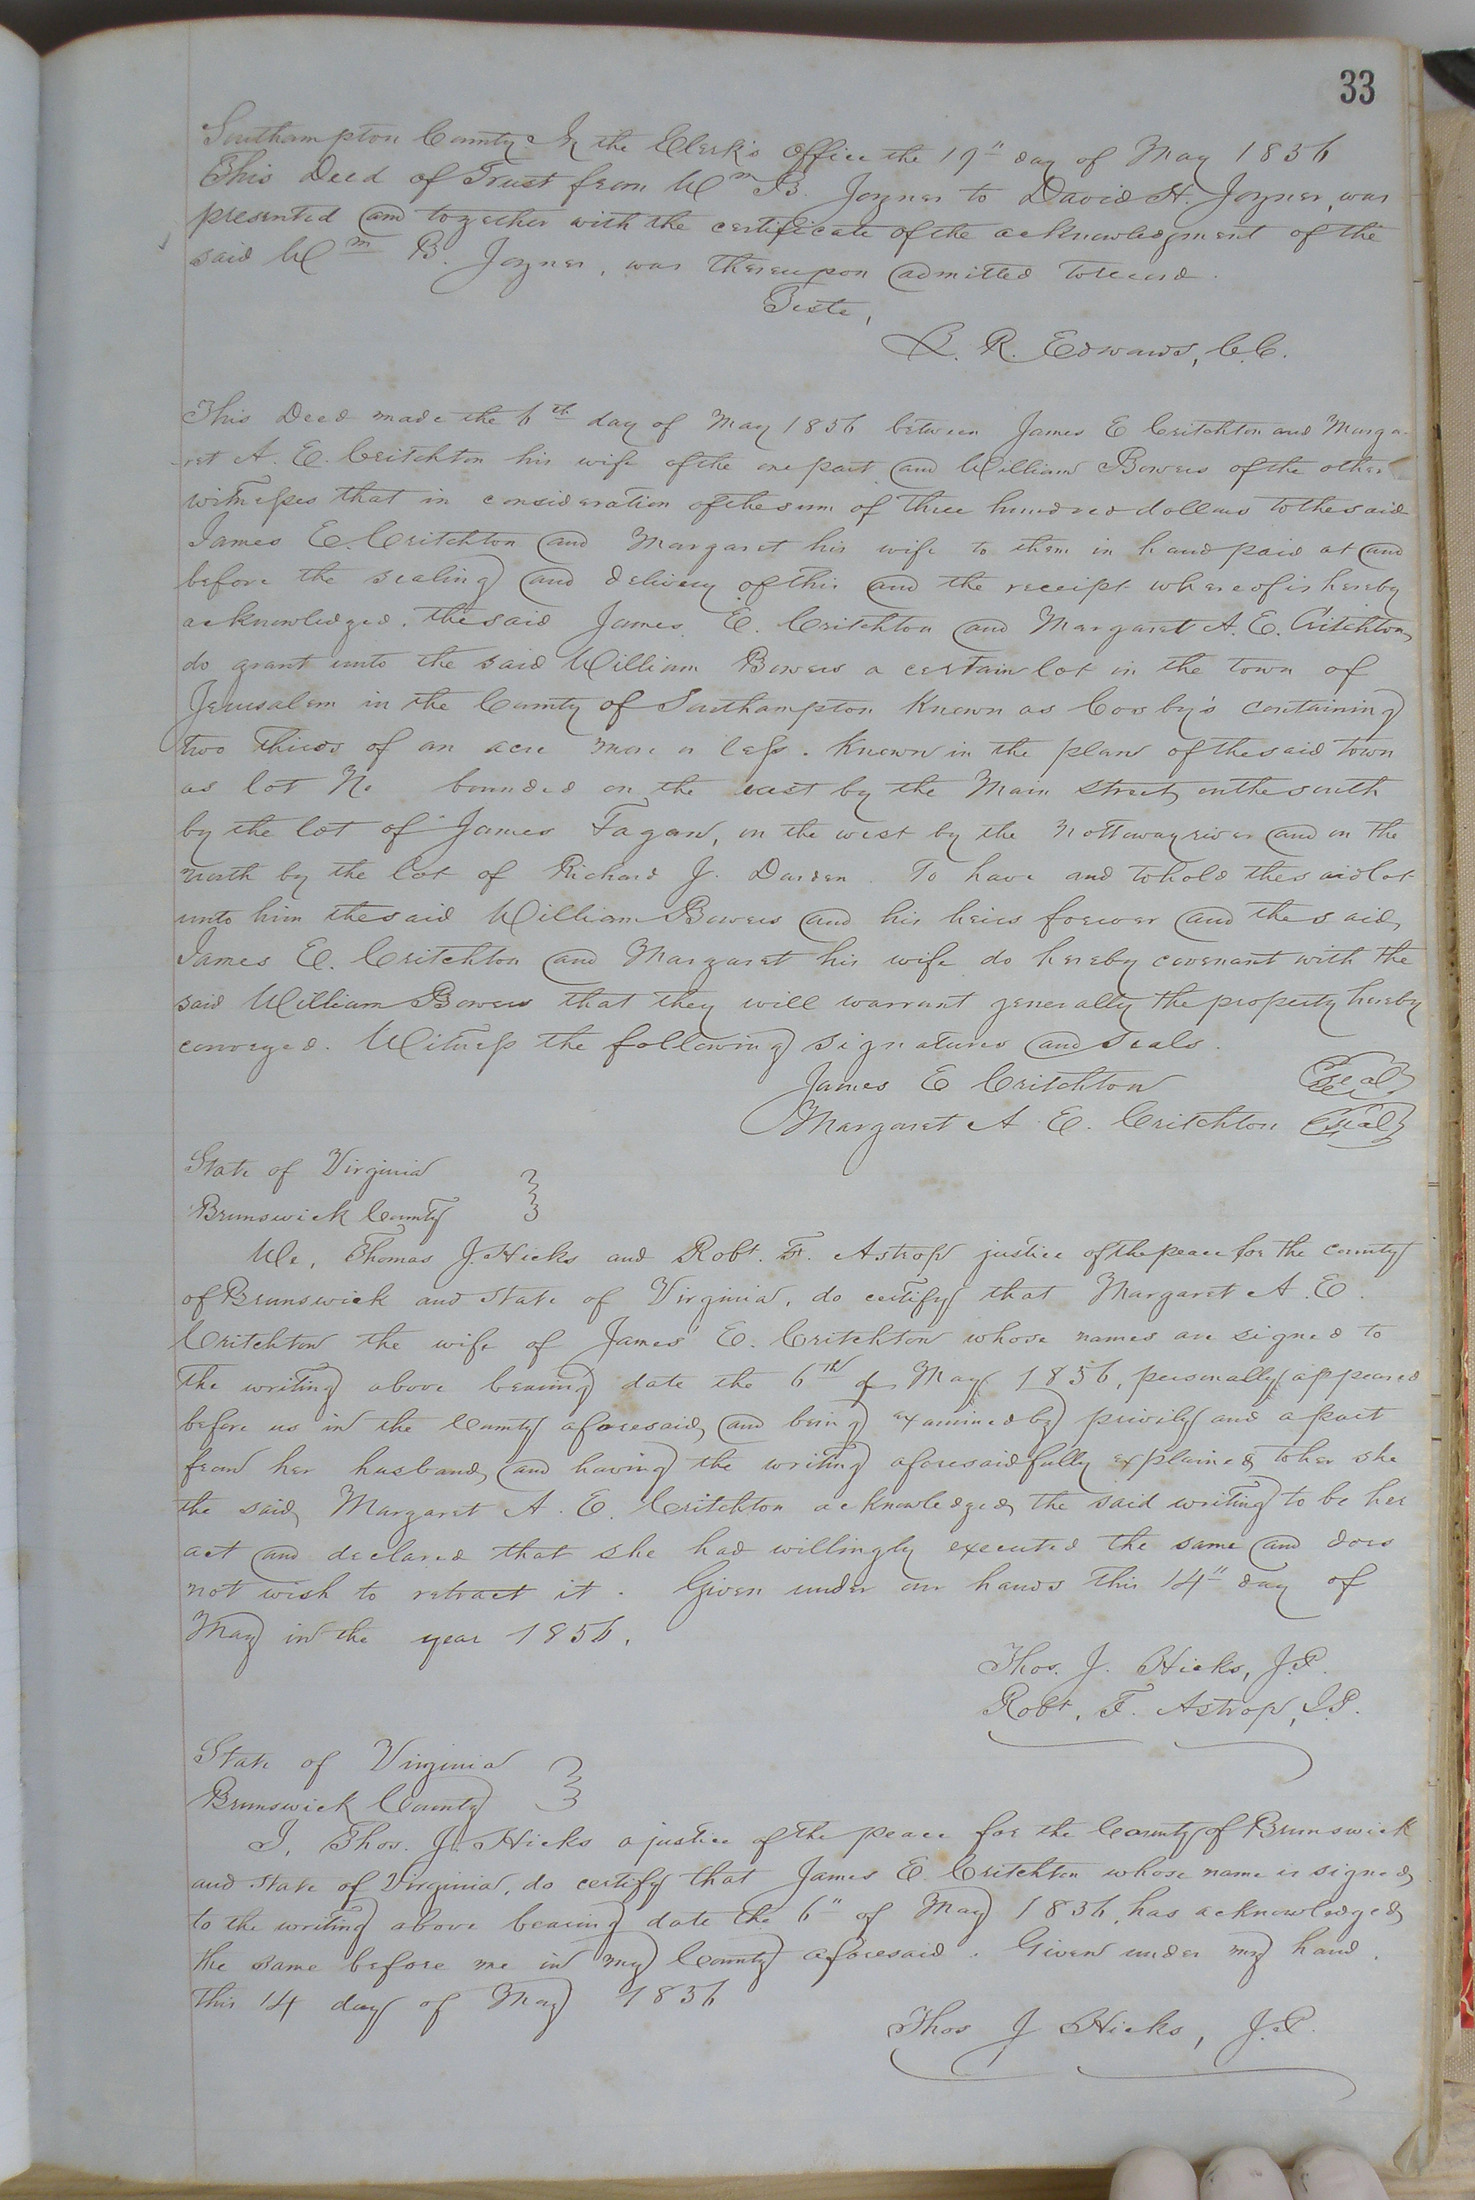 33
Southampton County In the Clerk's Office the 19" day of May 1856
This Deed of Trust from Wm B. Joyner to David H. Joyner, was
presented and together with the certificate of the acknowledgment of the
said Wm B. Joyner, was thereupon admitted to record.
Teste,
L. R. Edwards, C.C.
This Deed made the 6th day of May 1856 between James E Critchton and Marga-
ret A. E. Critchton his wife of the one part and William Bowers of the other
witnesses that in consideration of the sum of three hundred dollars to the said
James E. Critchton and Margaret his wife to them in hand paid at and
before the sealing and delivery of this and the receipt whereof is hereby
acknowledged. the said James E. Critchton and Margaret A. E. Critchton,
do grant unto the said William Bowers a certain lot in the town of
Jerusalem in the County of Southampton Known as Cosby's containing
two thirds of an acre more or less. Known in the plan of the said town
as lot No bounded on the east by the Main Street, on the south
by the lot of James Fagan, on the west by the Nottoway river and on the
north by the lot of Richard J. Darden. To have and to hold the said lot
unto him the said William Bowers and his heirs forever and the said,
James E. Critchton and Margaret his wife do hereby covenant with the
said William Bowers that they will warrant generally the property hereby
conveyed. Witness the following signatures and seals.
James E Critchton Seal
Margaret A. E. Critchton Seal
State of Virginia
Brunswick County
We, Thomas J. Hicks and Robt. F. Astrop justice of the peace for the county
of Brunswick and State of Virginia, do certify that Margaret A. E.
Critchton the wife of James E. Critchton whose names are signed to
the writing above bearing date the 6th of May 1856, personally appeared
before us in the County aforesaid, and being examined by privily and apart
from her husband, and having the writing aforesaid fully explained to her she
the said, Margaret A. E. Critchton acknowledged, the said writing to be her
act and declared that she had willingly executed the same and does
not wish to retract it. Given under our hands this 14" day of
May in the year 1856.
Thos. J. Hicks, J.P.
Robt. F. Astrop, J.P.
State of Virginia
Brunswick County
I, Thos. J. Hicks a justice of the peace for the County of Brunswick
and State of Virginia, do certify that James E. Critchton whose name is signed,
to the writing above bearing date the 6" of May 1856, has acknowledged,
the same before me in my County aforesaid. Given under my hand.
this 14 day of May 1856
Thos J Hicks, J.P.